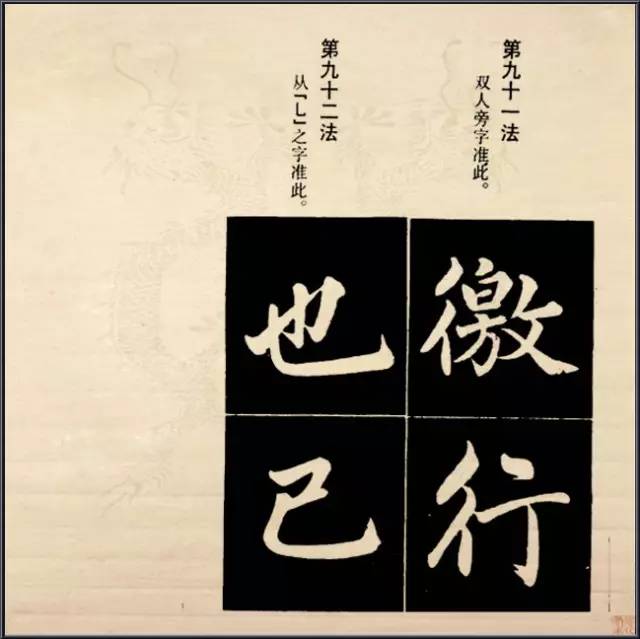 第九十一法
双人旁字准此。
徼
行
第九十二法
从「乚」之字准此。
也
已